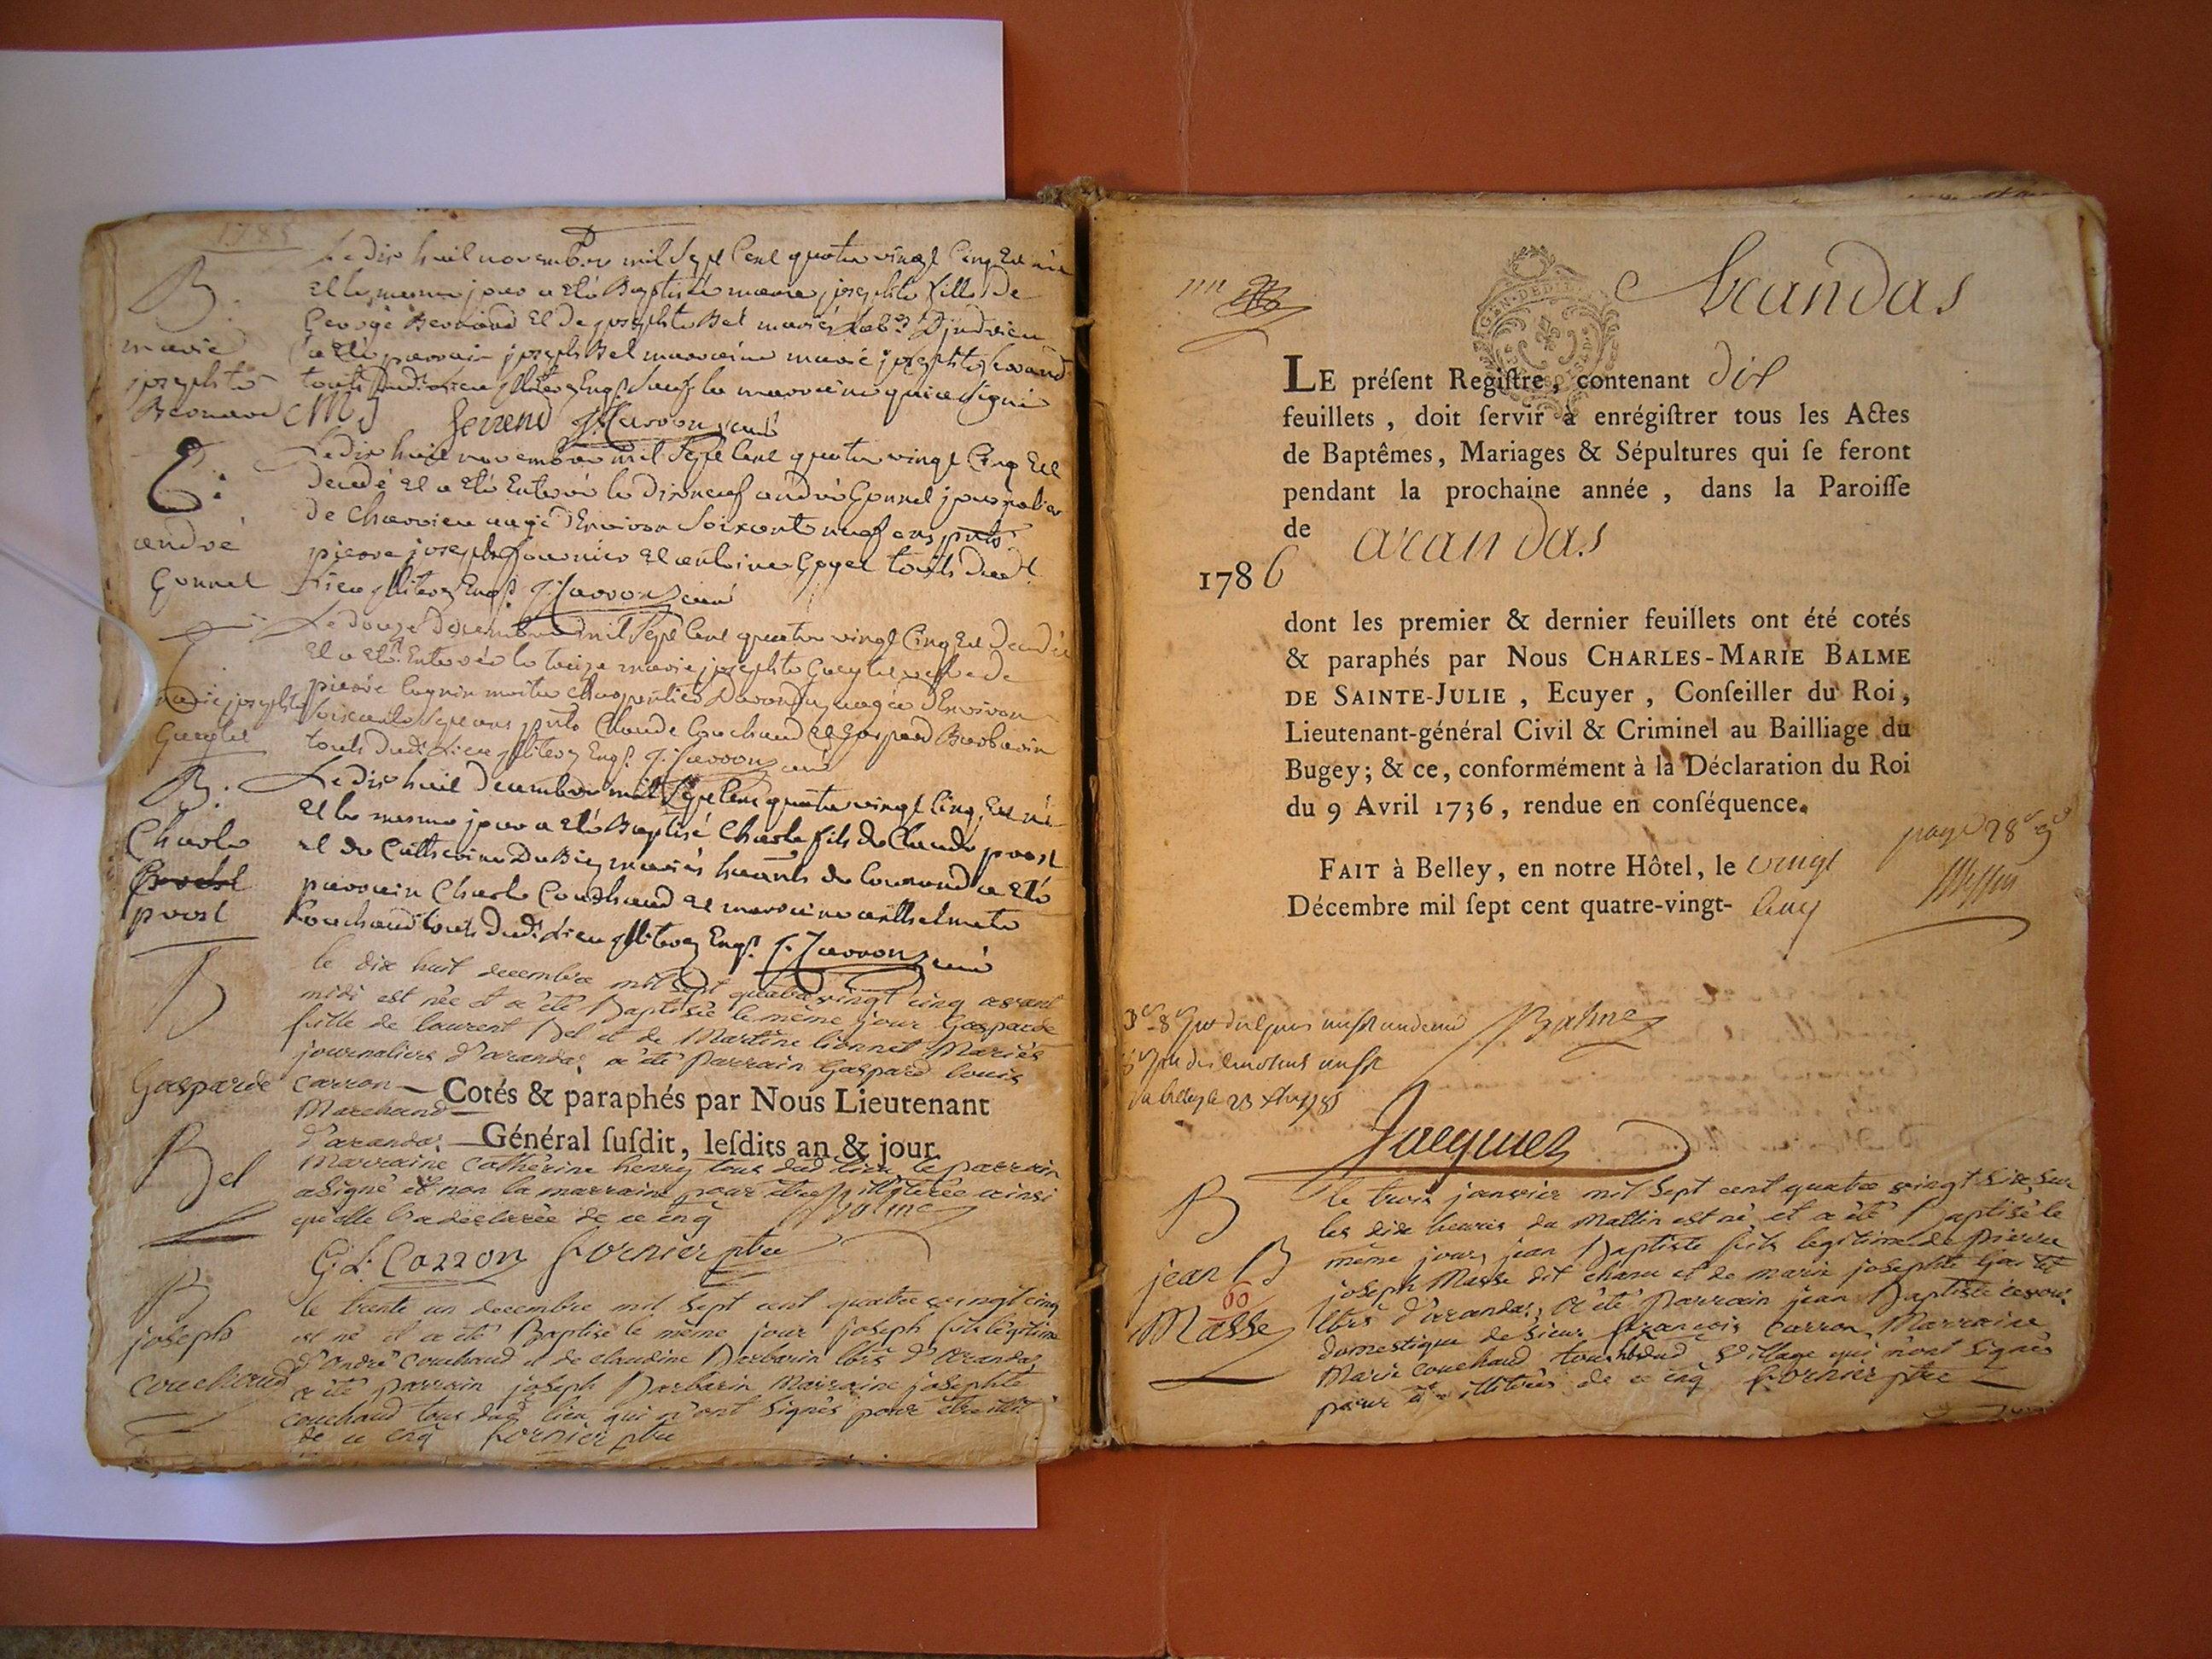 1785
Le dix huit novembre mil Sept Cent quatre vingt Cinq Est née
Et le mesme jour a Eté Baptisée marie josephte fille de
George Bernard Et de josephte Bel mariés
a Eté parrain joseph Bel marraine marie josephte
touts dudt Lieu illiterez Enqs Sauf la marraine qui a Signé
B.
marie
josephte
Bernard
M J Ferrend J. Carron curé
Le dix huit novembre mil Sept Cent quatre vingt Cinq Est
decedé Et a Eté Enterré le dixneuf andré Gonnel journalier
de Charvieu aagé d'Environ Soixante neuf ans pnts
pierre joseph fournier Et antoine Goyet touts dudt
Lieu illiterez Enqs J. Carron curé
E:
andré
Gonnel
Le douze Decembre mil Sept Cent quatre vingt Cinq Est decedée
Et a Eté Enterrée le treize marie josephte veffve de
pierre maitre Charpentier D'arandas aagée d'Environ
Soixante Sept ans pnts Claude Couchaud Et Gaspard Barbarin
touts dudt Lieu illiterez Enqs J. Carron curé
marie josephte
B.
Le dix huit Decembre mil Sept Cent quatre vingt Cinq Est né
Et le mesme jour a Eté Baptisé Charle fils de Claude prost
et de Catherine Dubiez mariés de a Eté
parrain Charle Couchaud Et marraine anthelmete
Couchaud touts dudt Lieu illiterez Enqs J. Carron curé
Charle
prost
B
le dix huit decembre mil Sept quatre vingt cinq avant
midi est née et a été Baptisée le même jour Gasparde
fille de laurent Bel et de Martine lionnet Mariés
journaliers d'arandas a été Parrain Gaspard louis
Gasparde
Bel
Carron
Marchand
Cotés & paraphés par Nous Lieutenant
d'arandas
Général ſuſdit, leſdits an & jour.
Marraine Catherine henry tous dud lieu, le parrain
a Signé et non la marraine pour être illiterée ainsi
qu'elle l'a déclarée de ce enq Balme
G. L. Carron fornier ptre
B
joseph
couchoud
le trente un decembre mil Sept cent quatre vingt cinq
est né et a été Baptisé le même jour joseph fils légitime
d'André Couchaud et de claudine Barbarin lbrs d'Arandas
a été parrain joseph Barbarin Marraine josephte
couchaud tous dud lieu qui n'ont Signés pour être illit
de ce enq fornier ptre
Arandas
LE préſent Regiſtre, contenant dix
feuillets, doit ſervir à enrégiſtrer tous les Actes
de Baptêmes, Mariages & Sépultures qui ſe feront
pendant la prochaine année, dans la Paroiſſe
de arandas
1786
dont les premier & dernier feuillets ont été cotés
& paraphés par Nous CHARLES-MARIE BALME
DE SAINTE-JULIE, Ecuyer, Conſeiller du Roi,
Lieutenant-général Civil & Criminel au Bailliage du
Bugey; & ce, conformément à la Déclaration du Roi
du 9 Avril 1736, rendue en conſéquence.
FAIT à Belley, en notre Hôtel, le vingt
Décembre mil ſept cent quatre-vingt- cinq
Balme
Jacquier
B
jean B
60
Masse
le trois janvier mil Sept cent quatre vingt Six, sur
les dix heures du Mattin est né et a été Baptisé le
même jour, jean Baptiste fils legitime de Pierre
joseph Masse dit chanu et de marie josephte
lbrs d'arandas, a été Parrain jean Baptiste
domestique de Sieur françois Carron, Marraine
Marie Couchaud tous dud Village qui n'ont Signés
pour être illiterés de ce enq fornier ptre